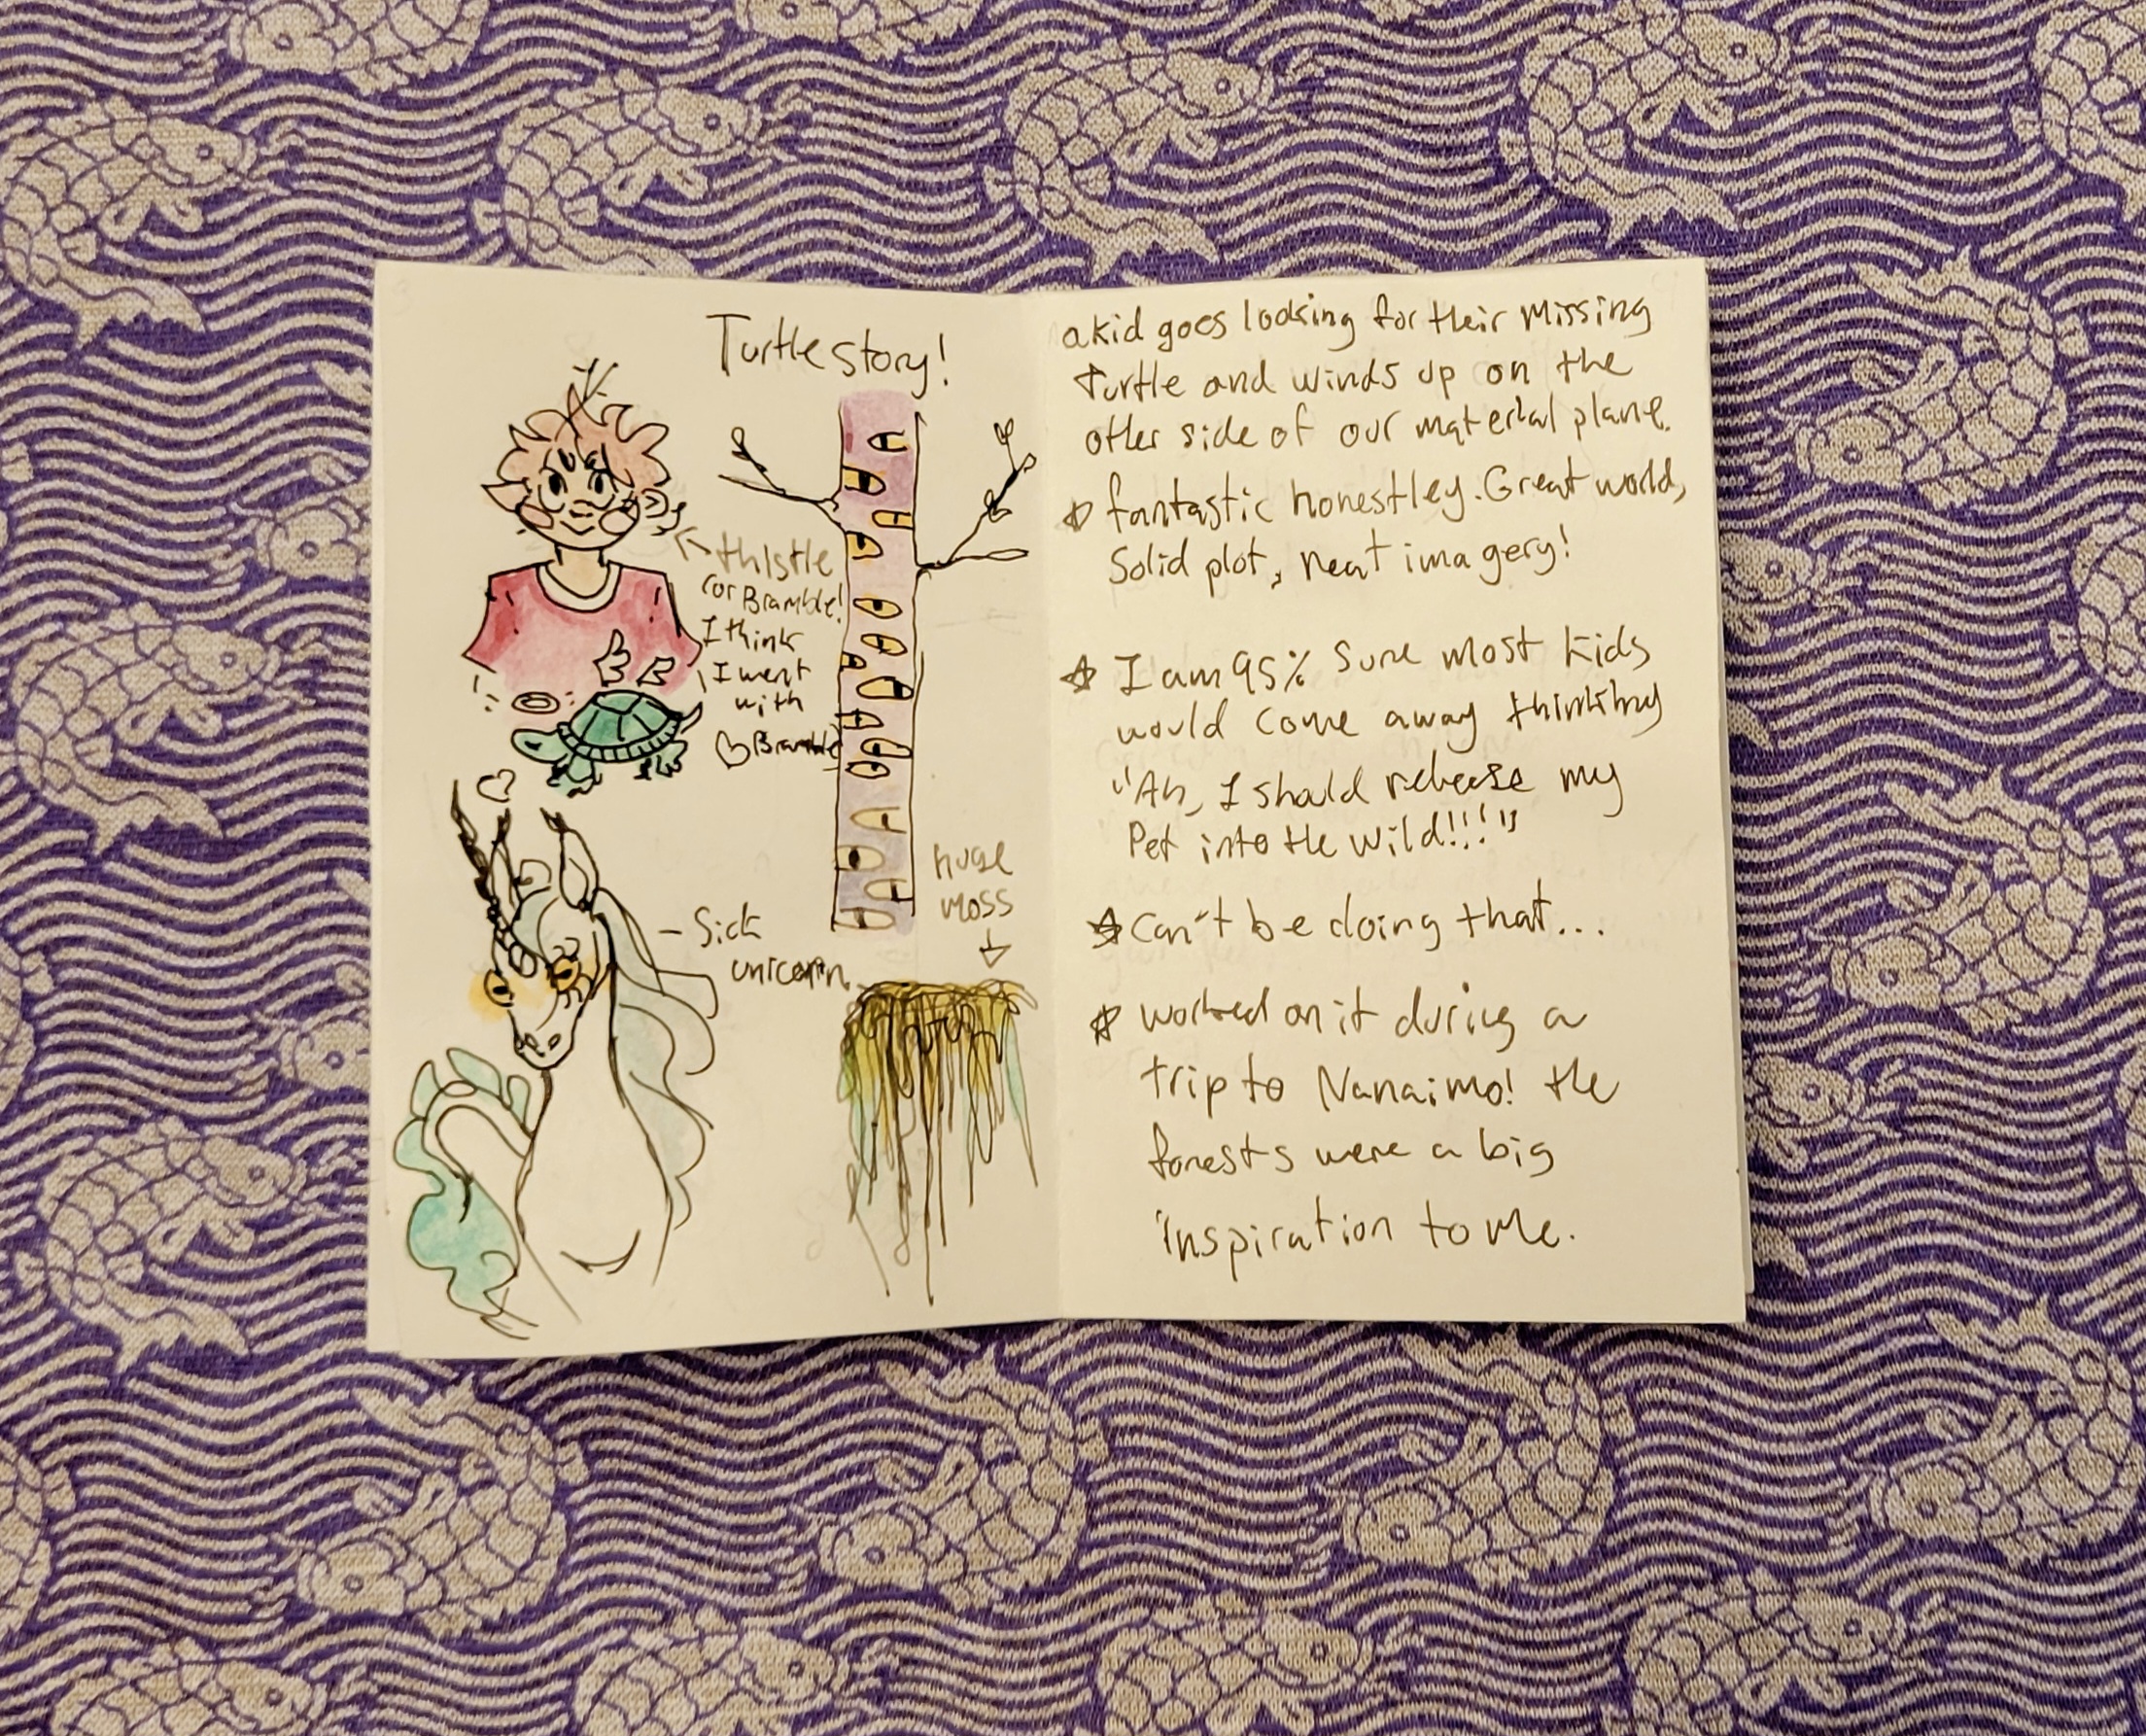 Turtle story!
thistle
(or Bramble!
I think
I went
with
Bramble
huge
moss
- Sick
unicorn
a kid goes looking for their missing
turtle and winds up on the
other side of our material plane.
fantastic honestley. Great world,
Solid plot, neat imagery!
I am 95% sure most kids
would come away thinking
"Ah, I should release my
Pet into the wild!!!"
Can't be doing that...
worked on it during a
trip to Nanaimo! the
forests were a big
inspiration to me.